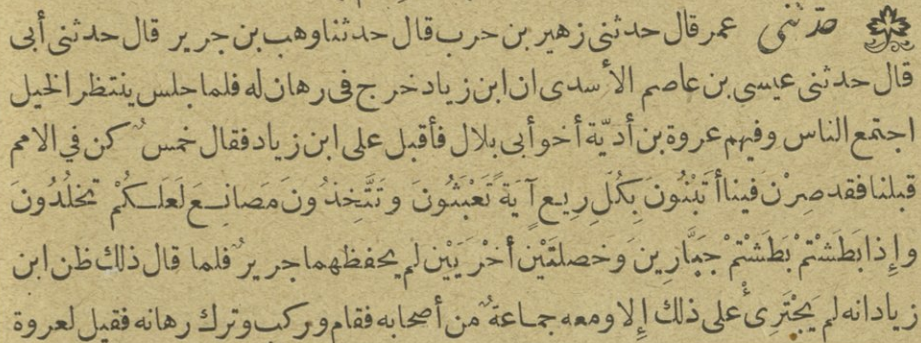 حدثنى عمر قال حدثنى زهير بن حرب قال حدثنا وهب بن جرير قال حدثنى أبى
قال حدثنى عيسى بن عاصم الأسدى ان ابن زياد خرج فى رهان له فلما جلس ينتظر الخيل
اجتمع الناس وفيهم عروة بن أديّة أخو أبى بلال فأقبل على ابن زياد فقال خمسٌ كن في الامم
قبلنا فقد صِرْن فينا أَتَبْنُونَ بِكُلِّ رِيعٍ آيَةً تَعْبَثُونَ وَتَتَّخِذُونَ مَصَانِعَ لَعَلَّكُمْ تَخلُدُونَ
وإِذا بَطَشْتُمْ بَطَشْتُمْ جَبَّارِينَ وَخصلتَيْن أُخْرَيَيْن لم يحفظهما جريرٌ فلما قال ذلك ظن ابن
زياد انه لم يَجْتَرِئْ على ذلك إلا ومعه جماعةٌ من أصحابه فقام وركب وترك رهانه فقيل لعروة